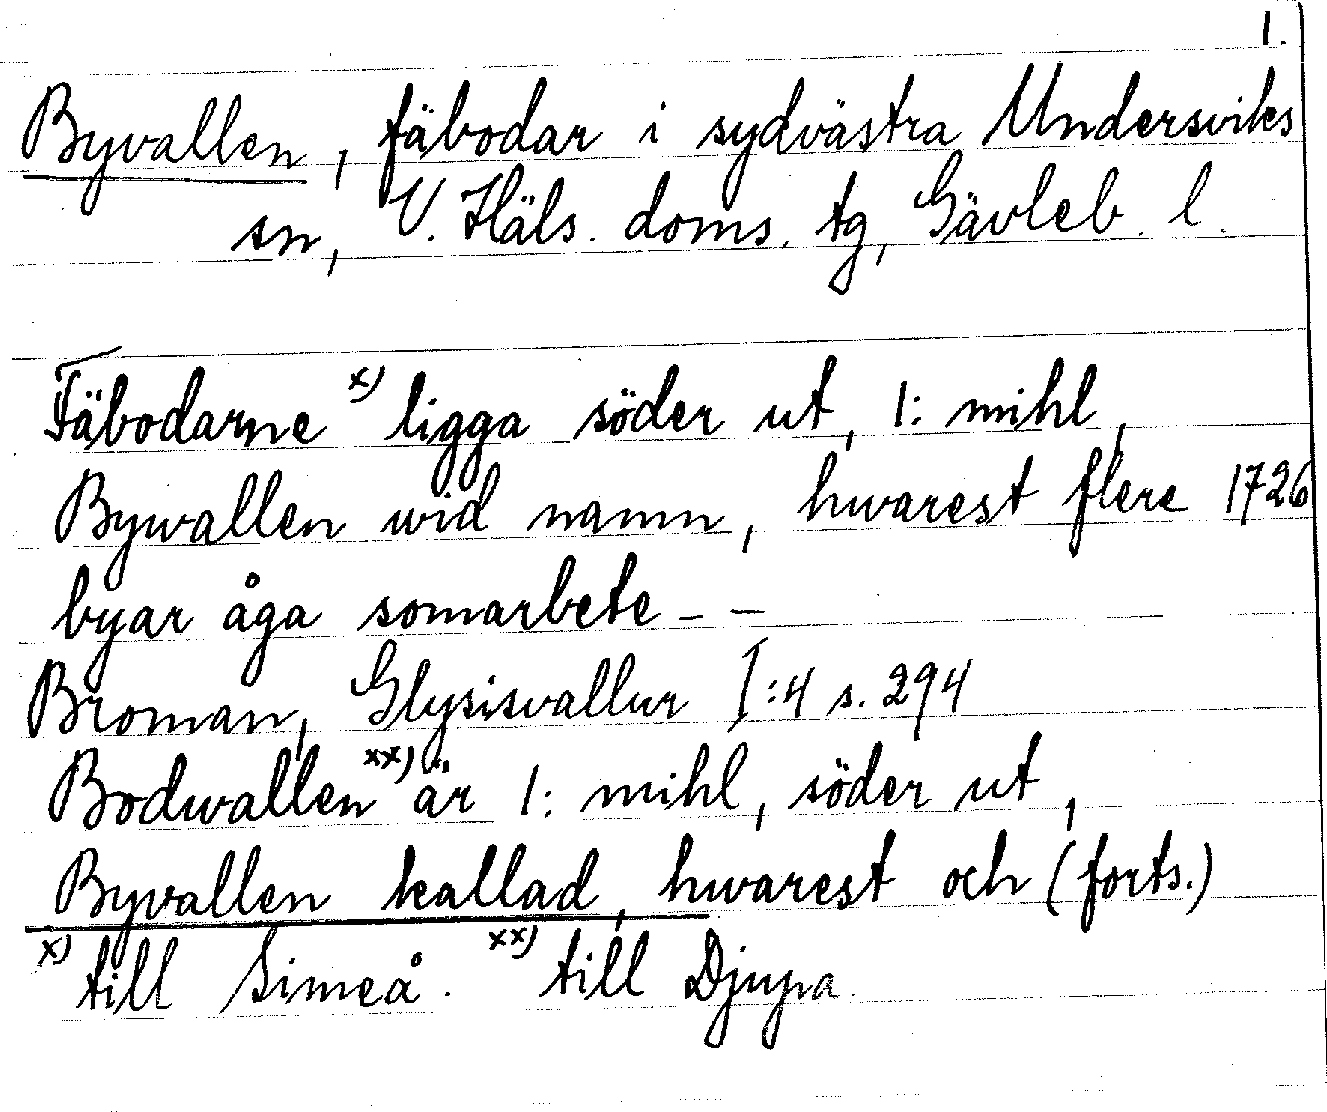 1.
Byvallen, fäbodar i sydvästra Undersviks
sn, V. Häls. doms. tg, Gävleb. l.
Fäbodarne x) ligga söder ut, 1: mihl,
Bywallen wid namn, hwarest flere 1726
byar åga somarbete - -
Broman, Glysisvallur I:4 s. 294
Bodwallen xx) är 1: mihl, söder ut,
Byvallen kallad, hwarest och (forts.)
x) till Simeå. xx) till Djupa.